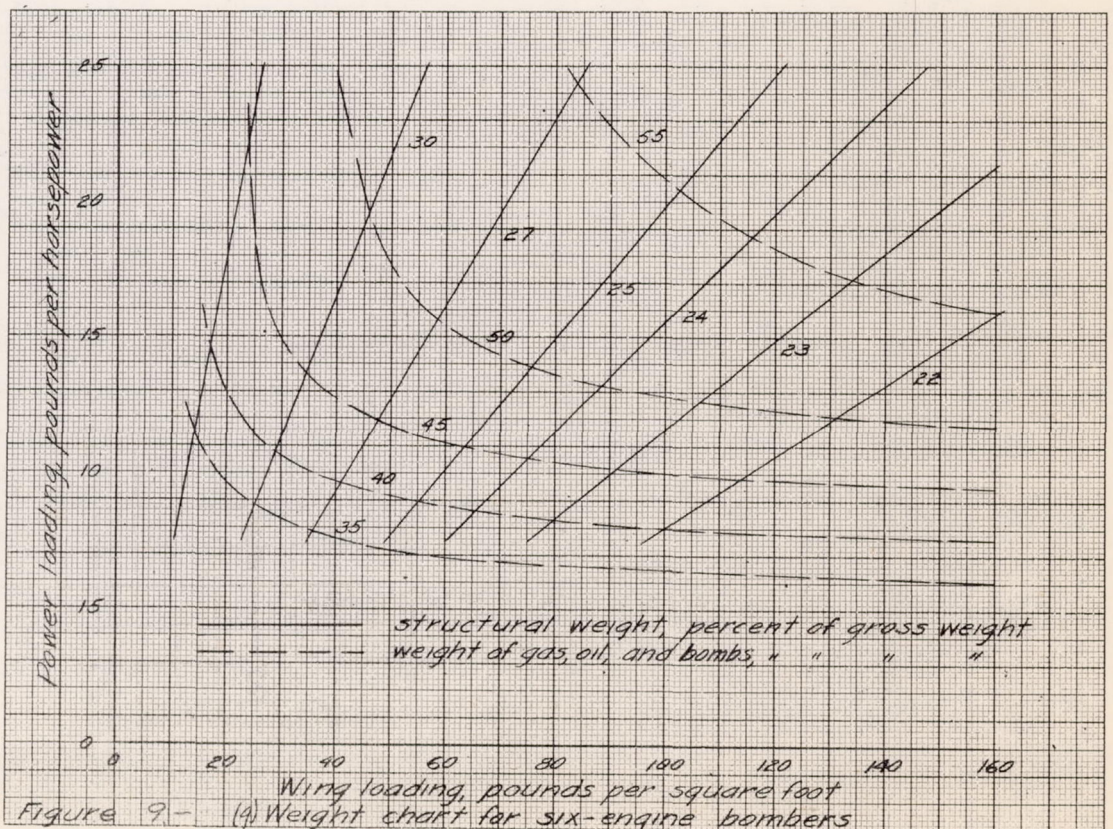 25
20
15
10
15
0
Power loading, pounds per horsepower
30
55
27
25
24
50
23
22
45
40
35
structural weight, percent of gross weight
weight of gas, oil, and bombs, " " " "
0 20 40 60 80 100 120 140 160
Wing loading, pounds per square foot
Figure 9.- Weight chart for six-engine bombers